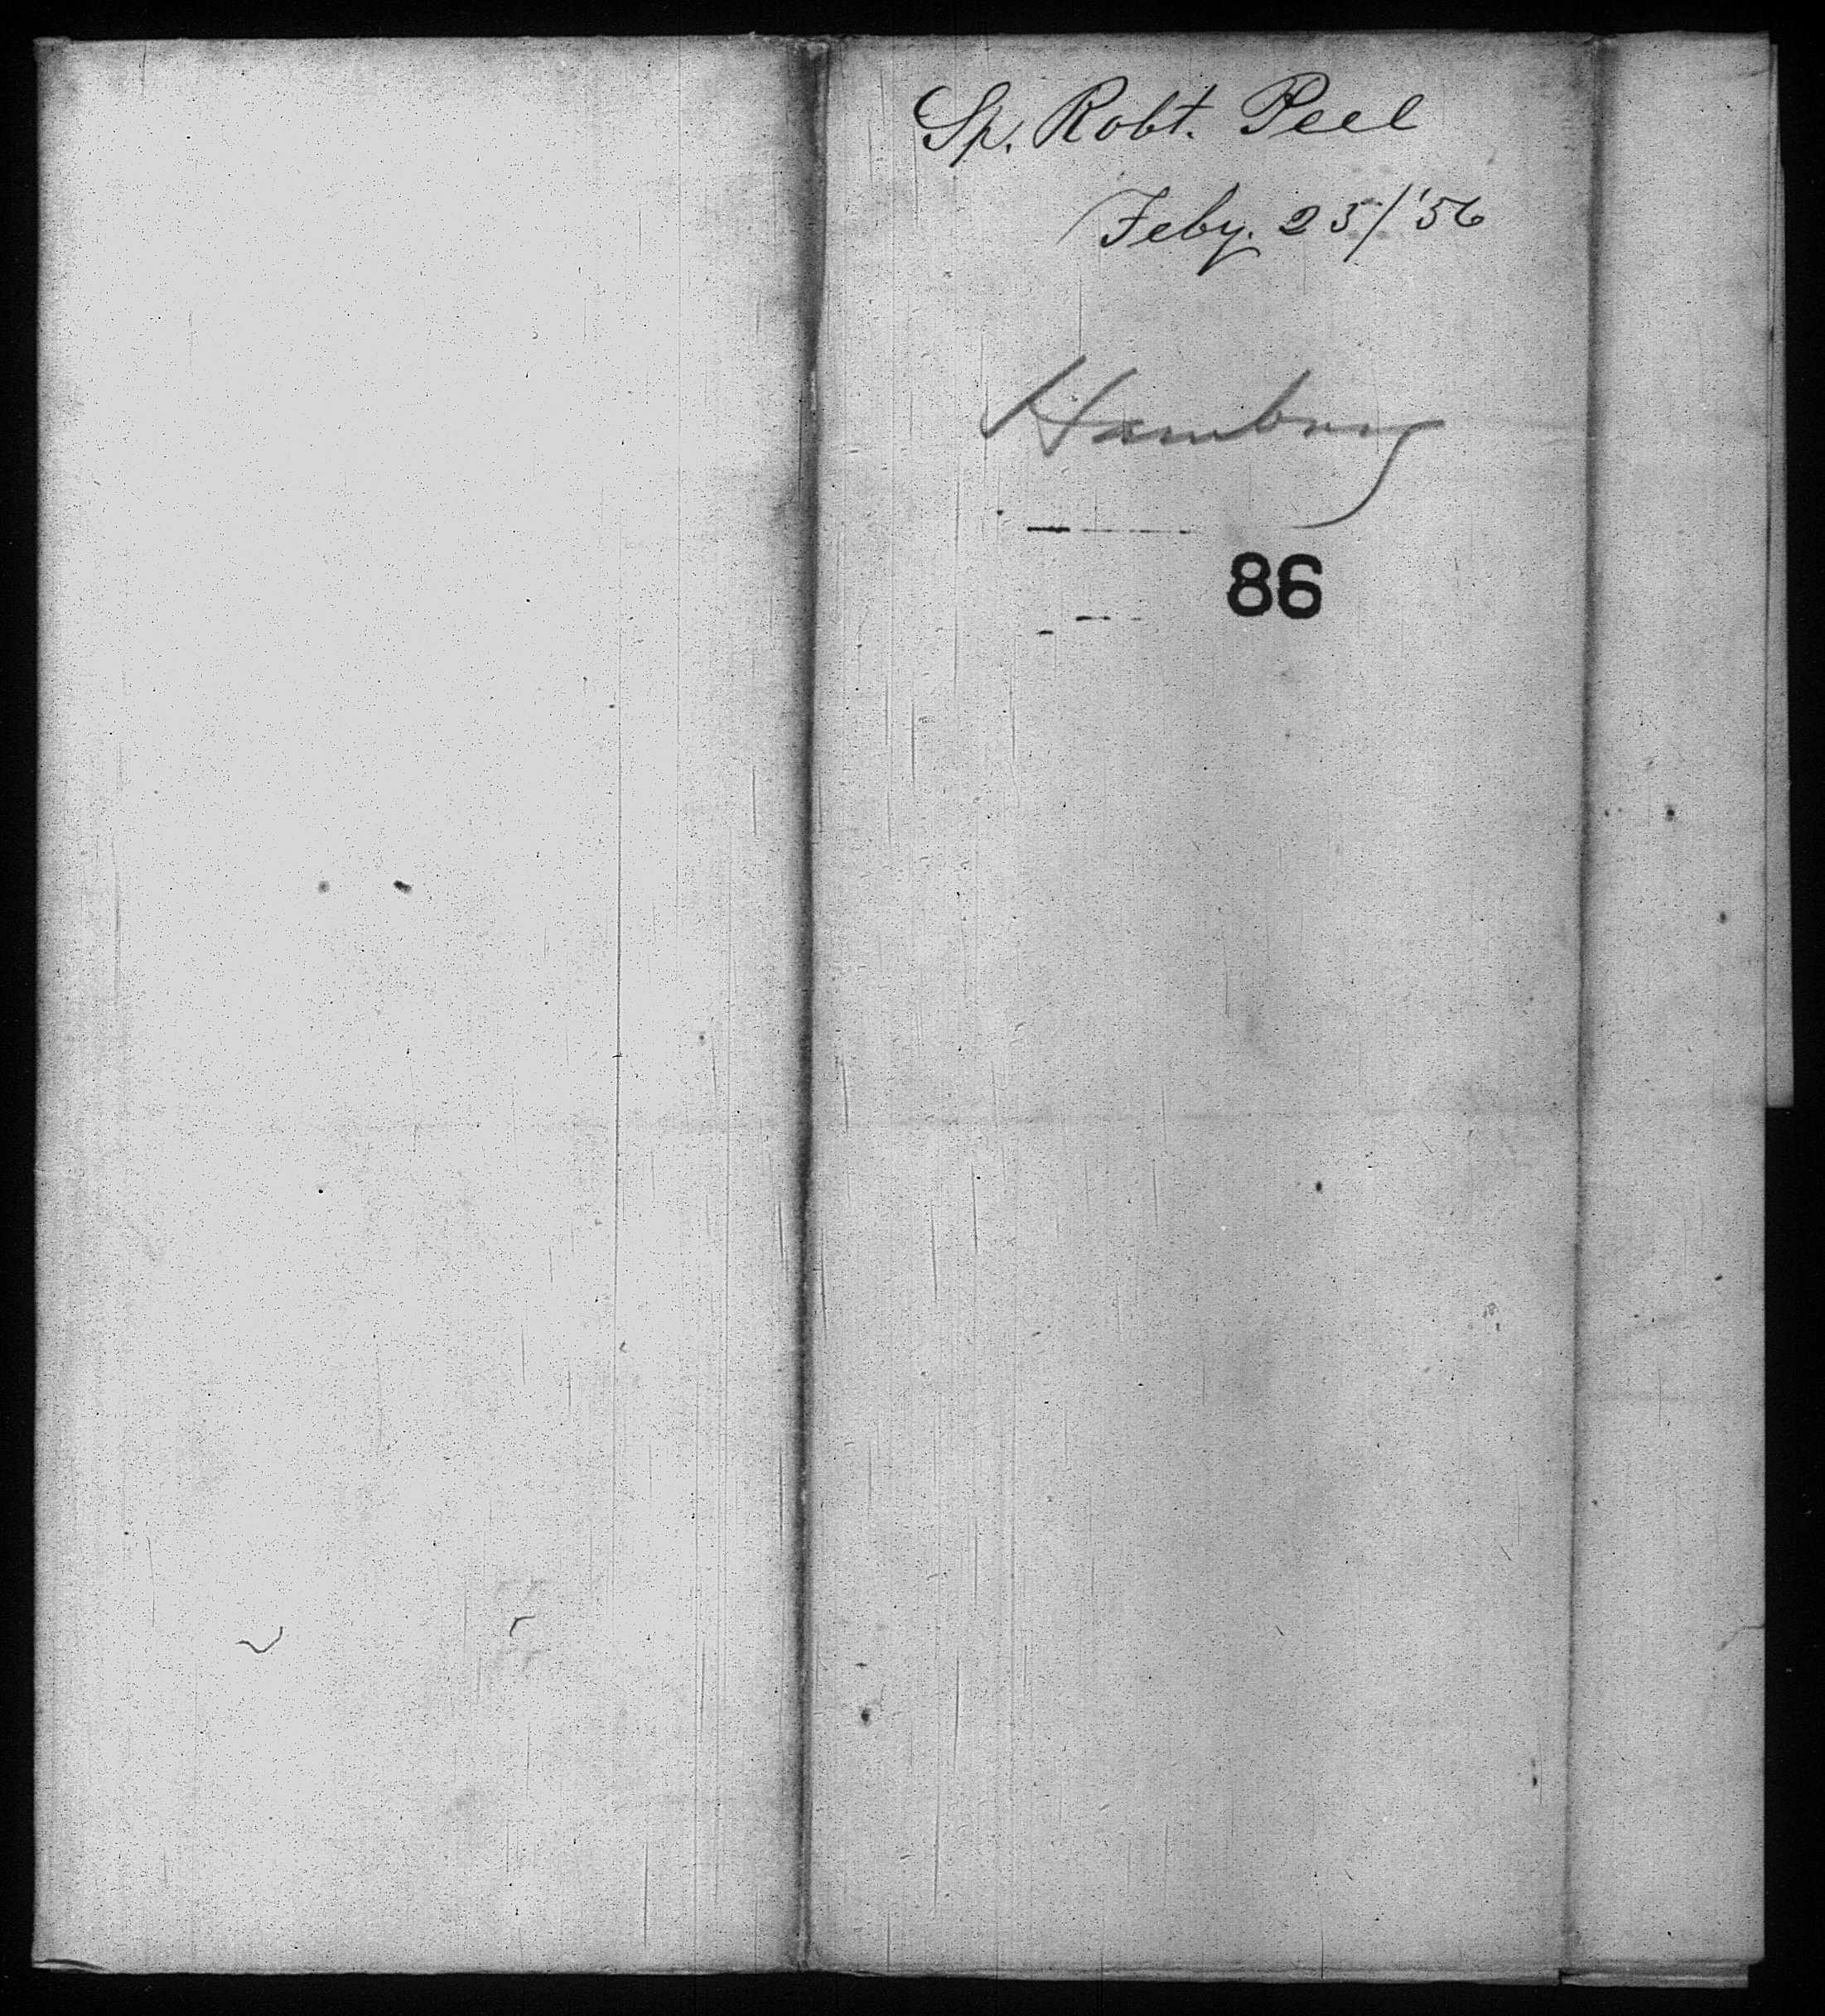 Sp. Robt. Peel
Feby. 25/'56
Hamburg
86